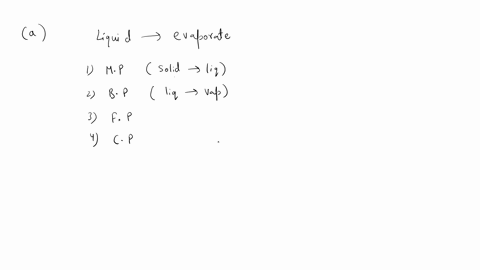 (a) Liquid → evaporate
1) M.P (solid → liq)
2) B.P (liq → vap)
3) F.P
4) C.P